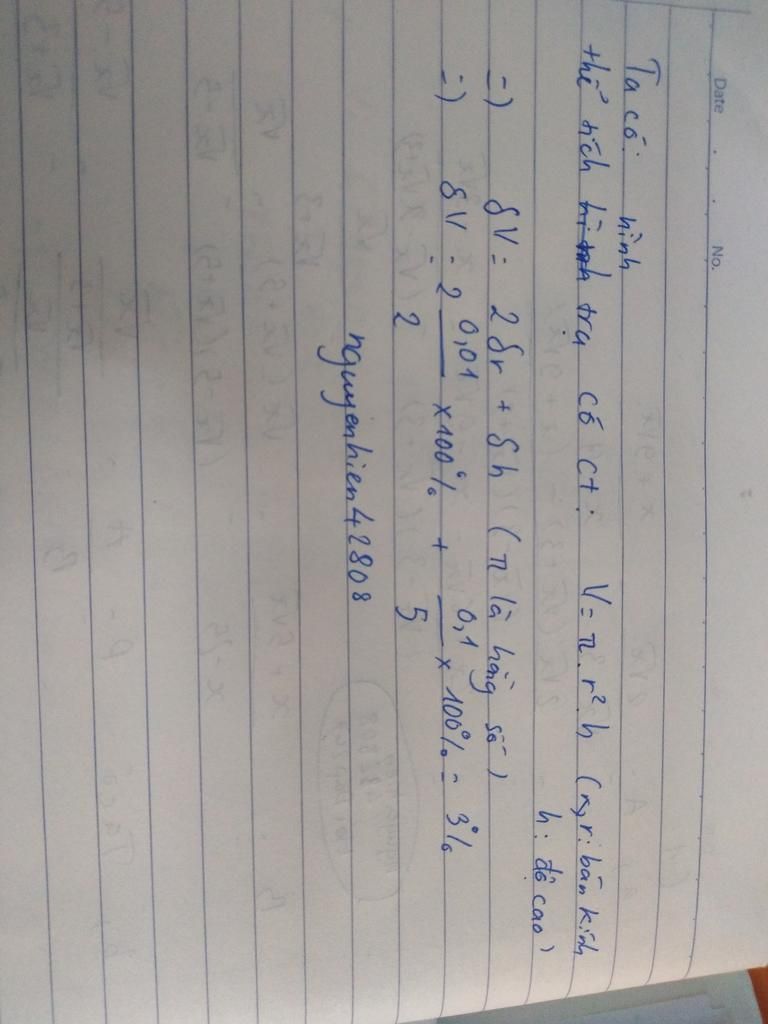 Date . . . No.
Ta có:
thể tích hình trụ có ct: V = π.r².h (r: bán kính
h: độ cao)
=) δV = 2 δr + δh (π là hằng số)
=) δV = 2 0,01/2 x 100% + 0,1/5 x 100% = 3%
nguyenhien42808